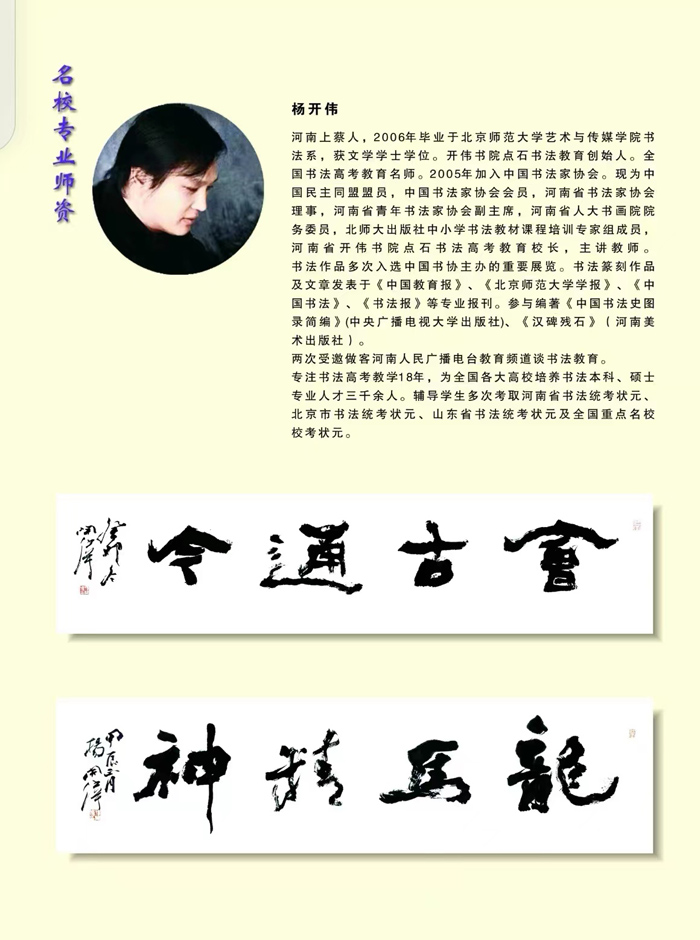 名校专业师资
杨开伟
河南上蔡人，2006年毕业于北京师范大学艺术与传媒学院书
法系，获文学学士学位。开伟书院点石书法教育创始人。全
国书法高考教育名师。2005年加入中国书法家协会。现为中
国民主同盟盟员，中国书法家协会会员，河南省书法家协会
理事，河南省青年书法家协会副主席，河南省人大书画院院
务委员，北师大出版社中小学书法教材课程培训专家组成员，
河南省开伟书院点石书法高考教育校长，主讲教师。
书法作品多次入选中国书协主办的重要展览。书法篆刻作品
及文章发表于《中国教育报》、《北京师范大学学报》、《中
国书法》、《书法报》等专业报刊。参与编著《中国书法史图
录简编》(中央广播电视大学出版社)、《汉碑残石》（河南美
术出版社）。
两次受邀做客河南人民广播电台教育频道谈书法教育。
专注书法高考教学18年，为全国各大高校培养书法本科、硕士
专业人才三千余人。辅导学生多次考取河南省书法统考状元、
北京市书法统考状元、山东省书法统考状元及全国重点名校
校考状元。
會古通今
癸卯冬
開偉
龍馬精神
甲辰三月
楊開偉